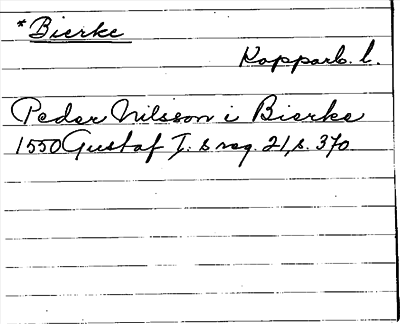 *Bierke
Kopparb. l.
Peder Nilsson i Bierke
1550 Gustaf I:s reg. 21, s. 370.